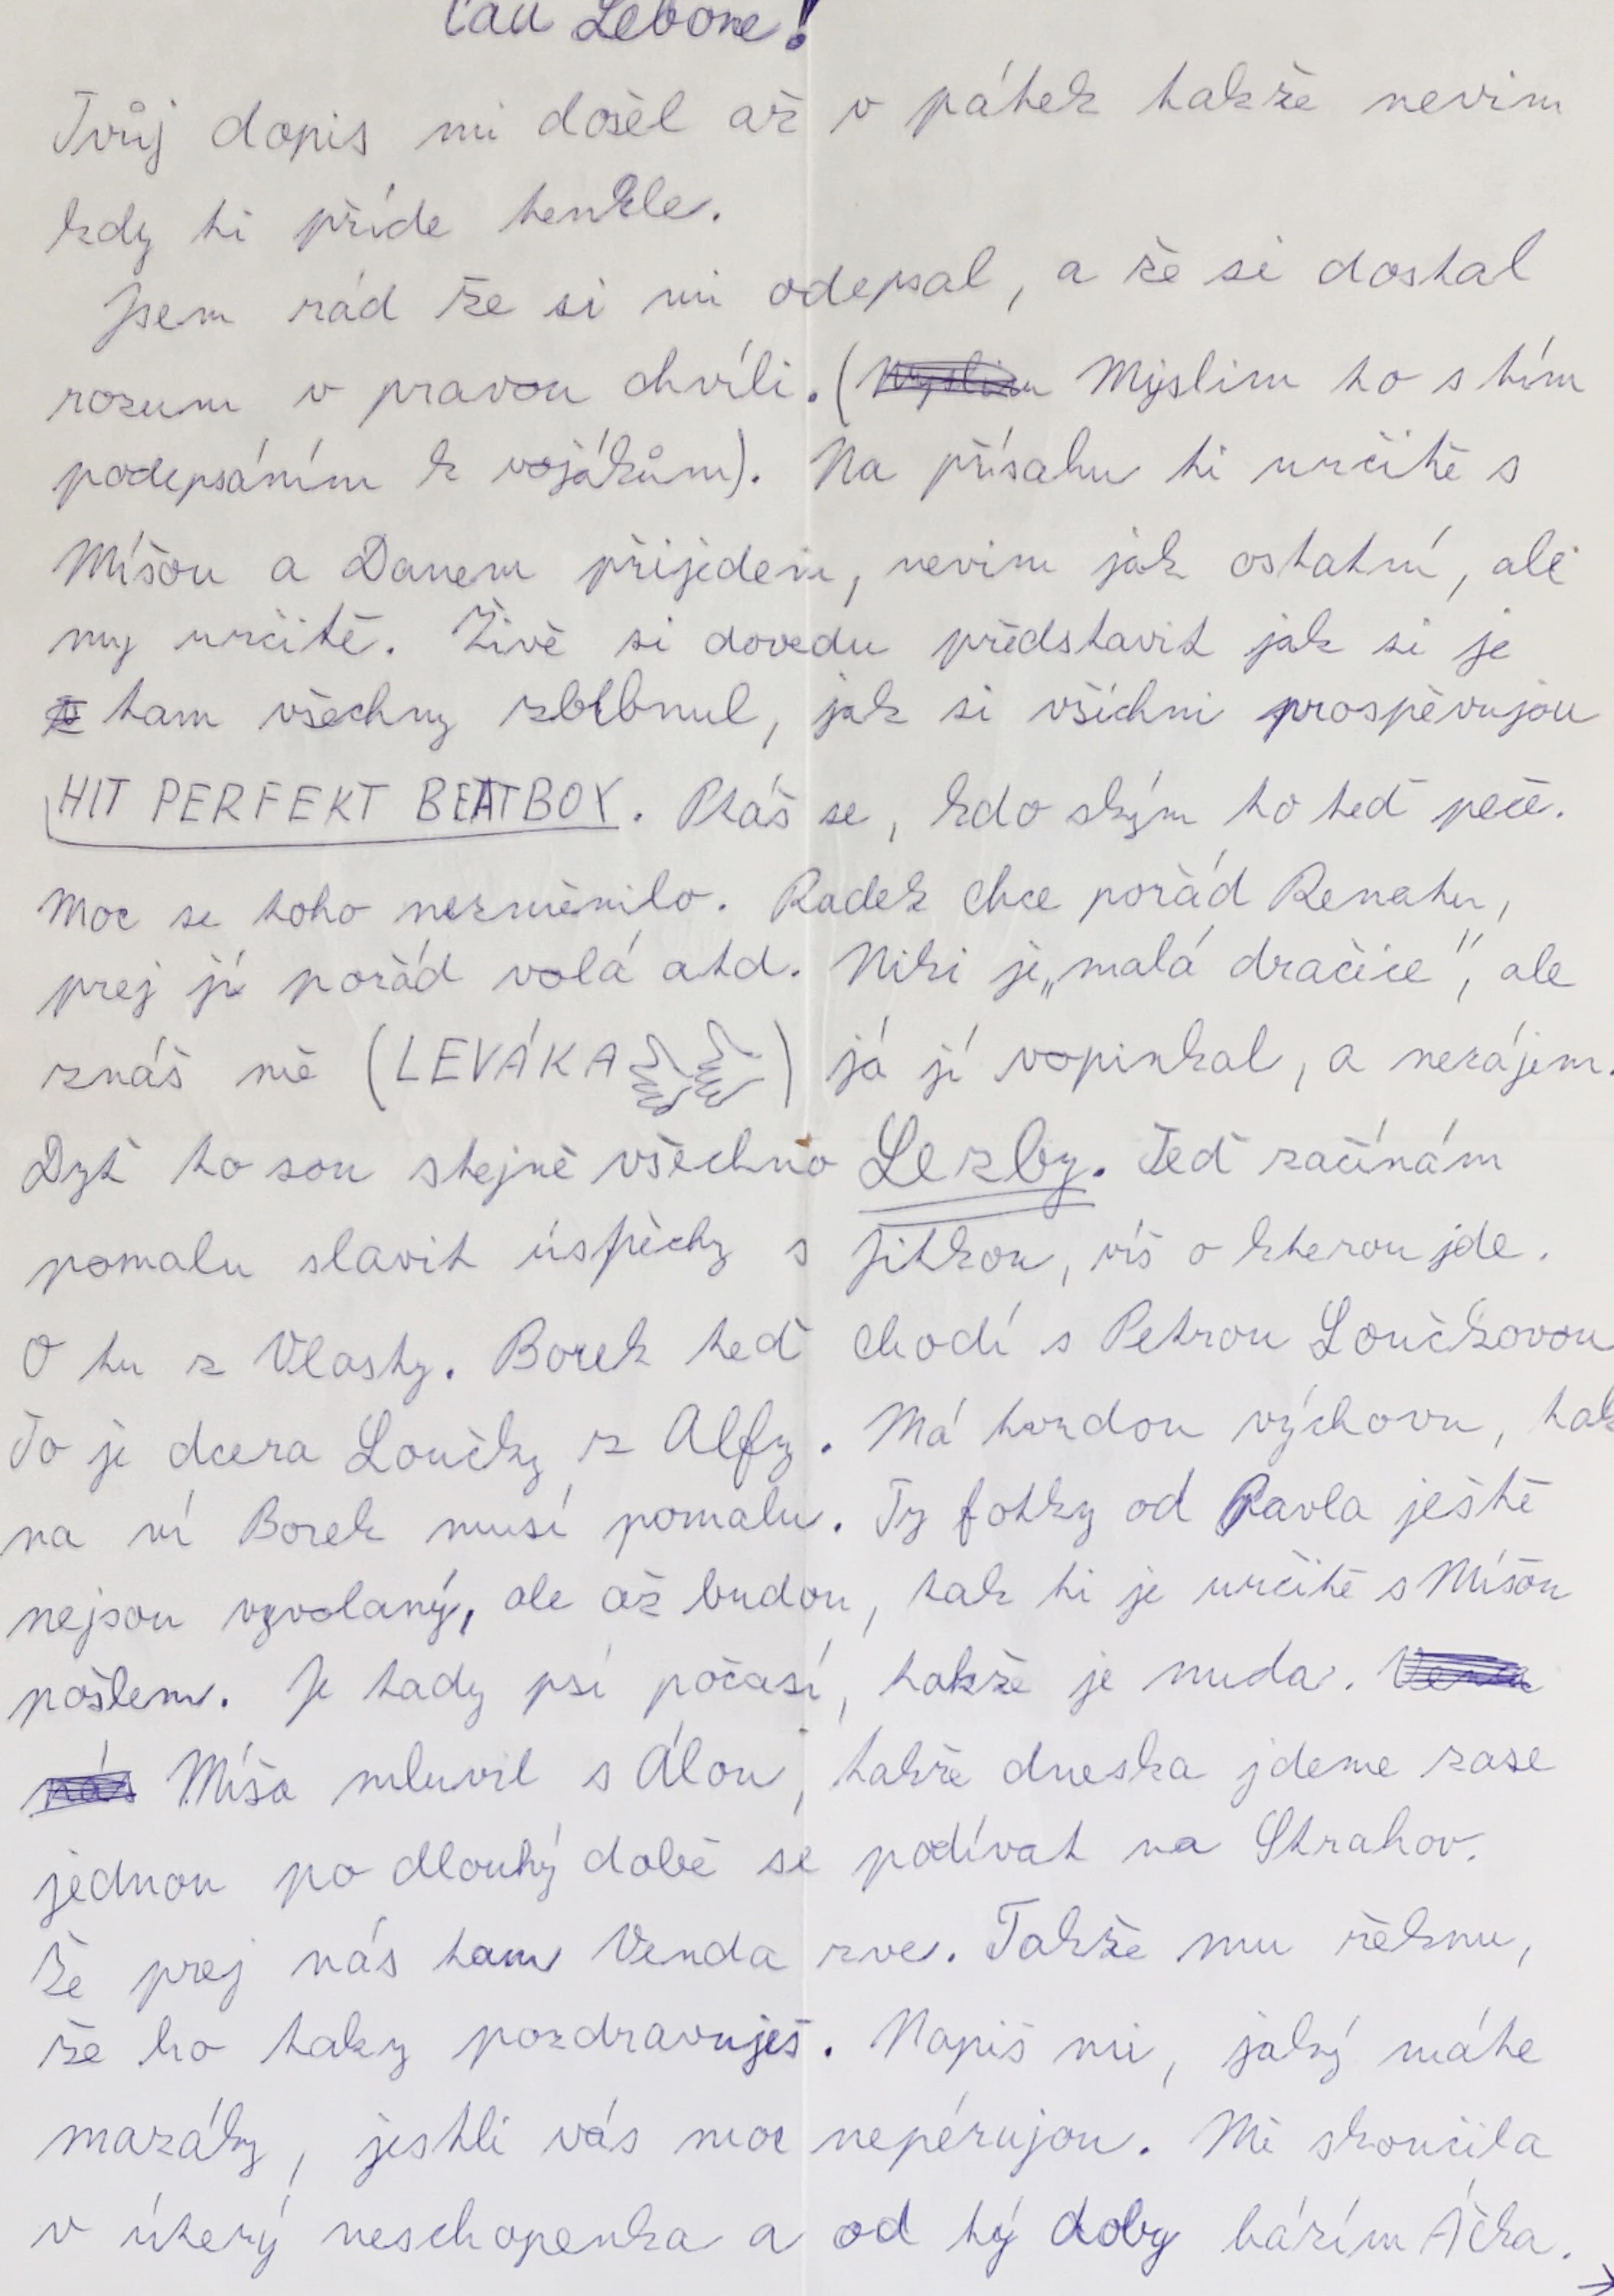 Čau Lebone!
Tvůj dopis mi došel až v pátek takže nevim
kdy ti příde tenkle.
Jsem rád že si mi odepsal, a že si dostal
rozum v pravou chvíli. (Myslim Myslim to s tím
podepsáním k vojákům). Na přísahu ti určitě s
Míšou a Danem přijedem, nevim jak ostatní, ale
my určitě. Živě si dovedu představit jak si je
tam všechny zblbnul, jak si všichni prospěvujou
HIT PERFEKT BEATBOX. Ptáš se, kdo ským to teď peče.
Moc se toho nezměnilo. Radek chce pořád Renatu,
prej jí pořád volá atd. Niki je „malá dračice", ale
znáš mě (LEVÁKA) já jí vopinkal, a nezájem.
Dyť to sou stejně všechno Lezby. Teď začínám
pomalu slavit úspěchy s Jitkou, víš o kterou jde.
O tu z Vlasty. Borek teď chodí s Petrou Loučkovou
To je dcera Loučky z Alfy. Má tvrdou výchovu, tak
na ní Borek musí pomalu. Ty fotky od Pavla ještě
nejsou vyvolaný, ale až budou, tak ti je určitě s Míšou
pošlem. Je tady psí počasí, takže je nuda.
nás Míša mluvil s Álou, takže dneska jdeme zase
jednou po dlouhý době se podívat na Strahov.
Že prej nás tam Venda zve. Takže mu řeknu,
že ho taky pozdravuješ. Napiš mi, jaký máte
mazáky, jestli vás moc nepérujou. Mě skončila
v úterý neschopenka a od tý dobyházím Áčka.
→